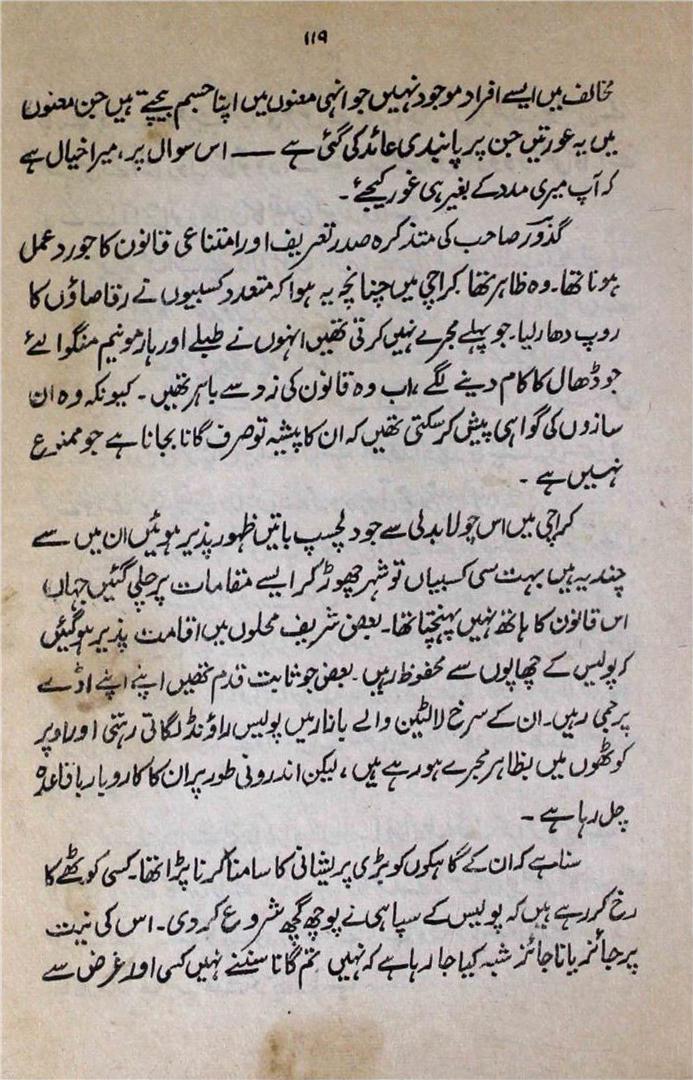 ۱۱۹
مخالف میں ایسے افراد موجود نہیں جو انہی معنوں میں اپنا جسم بیچتے ہیں جن معنوں
میں یہ عورتیں جن پر پابندی عائد کی گئی ہے ــــ اس سوال پر، میرا خیال ہے
کہ آپ میری مدد کے بغیر ہی غور کیجئے۔
گذور صاحب کی متذکرہ صدر تعریف اور امتناعی قانون کا جو رد عمل
ہونا تھا۔ وہ ظاہر تھا کراچی میں چنانچہ یہ ہوا کہ متعدد کسبیوں نے رقاصاؤں کا
روپ دھار لیا۔ جو پہلے مجرے نہیں کرتی تھیں انہوں نے طبلے اور ہارمونیم منگوا لئے
جو ڈھال کا کام دینے لگے، اب وہ قانون کی زد سے باہر تھیں۔ کیونکہ وہ ان
سازوں کی گواہی پیش کر سکتی تھیں کہ ان کا پیشہ تو صرف گانا بجانا ہے جو ممنوع
نہیں ہے۔
کراچی میں اس چولا بدلی سے جو دلچسپ باتیں ظہور پذیر ہوئیں ان میں سے
چند یہ ہیں بہت سی کسبیاں تو شہر چھوڑ کر ایسے مقامات پر چلی گئیں جہاں
اس قانون کا ہاتھ نہیں پہنچتا تھا۔ بعض شریف محلوں میں اقامت پذیر ہو گئیں
کہ پولیس کے چھاپوں سے محفوظ رہیں۔ بعض جو ثابت قدم تھیں اپنے اپنے اڈے
پر جمی رہیں۔ ان کے سرخ لالٹین والے بازار میں پولیس راؤنڈ لگاتی رہتی اور اوپر
کوٹھوں میں بظاہر مجرے ہو رہے ہیں، لیکن اندرونی طور پر ان کا کاروبار باقاعدہ
چل رہا ہے۔
سنا ہے کہ ان کے گاہکوں کو بڑی پریشانی کا سامنا کرنا پڑا تھا۔ کسی کوٹھے کا
رخ کر رہے ہیں کہ پولیس کے سپاہی نے پوچھ گچھ شروع کر دی۔ اس کی نیت
پر جائز یا ناجائز شبہ کیا جا رہا ہے کہ نہیں تم گانا سننے نہیں کسی اور غرض سے